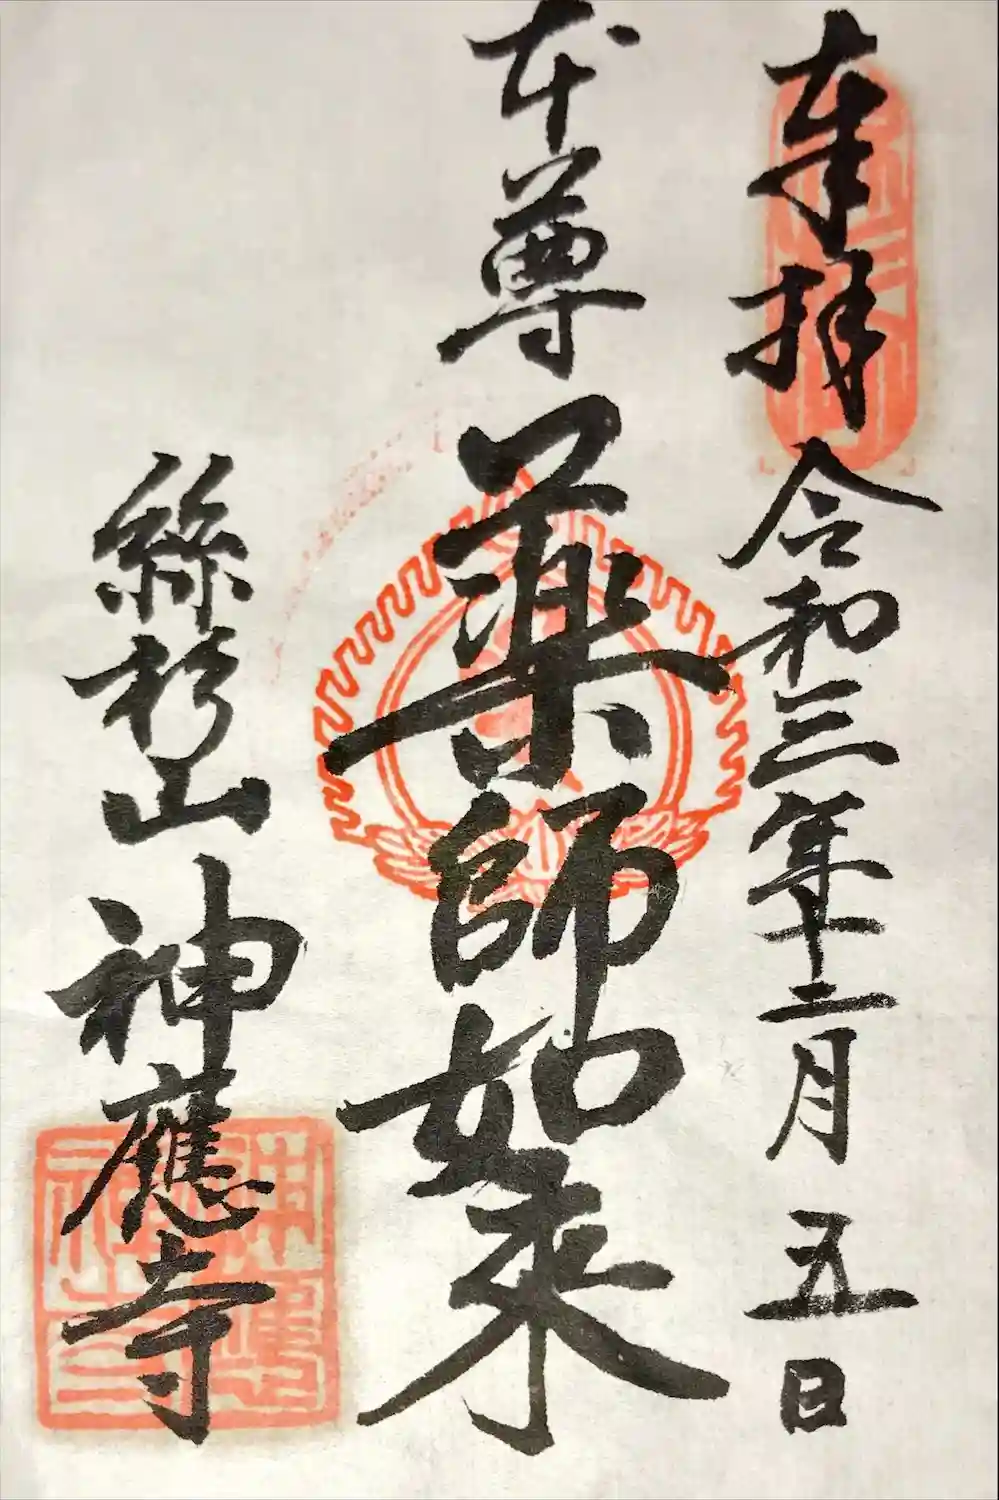 奉拝 令和三年十二月五日
本尊 薬師如来
絲杉山 神應寺